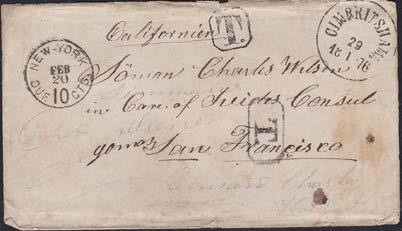 Californien
T.
CIMBRITSHAMN
29
18 1 76
NEW-YORK
FEB
20
DUE 10 CTS
Söman Charles Wilson
in Care of Sveides Consul
T.
gomoz San Francisco